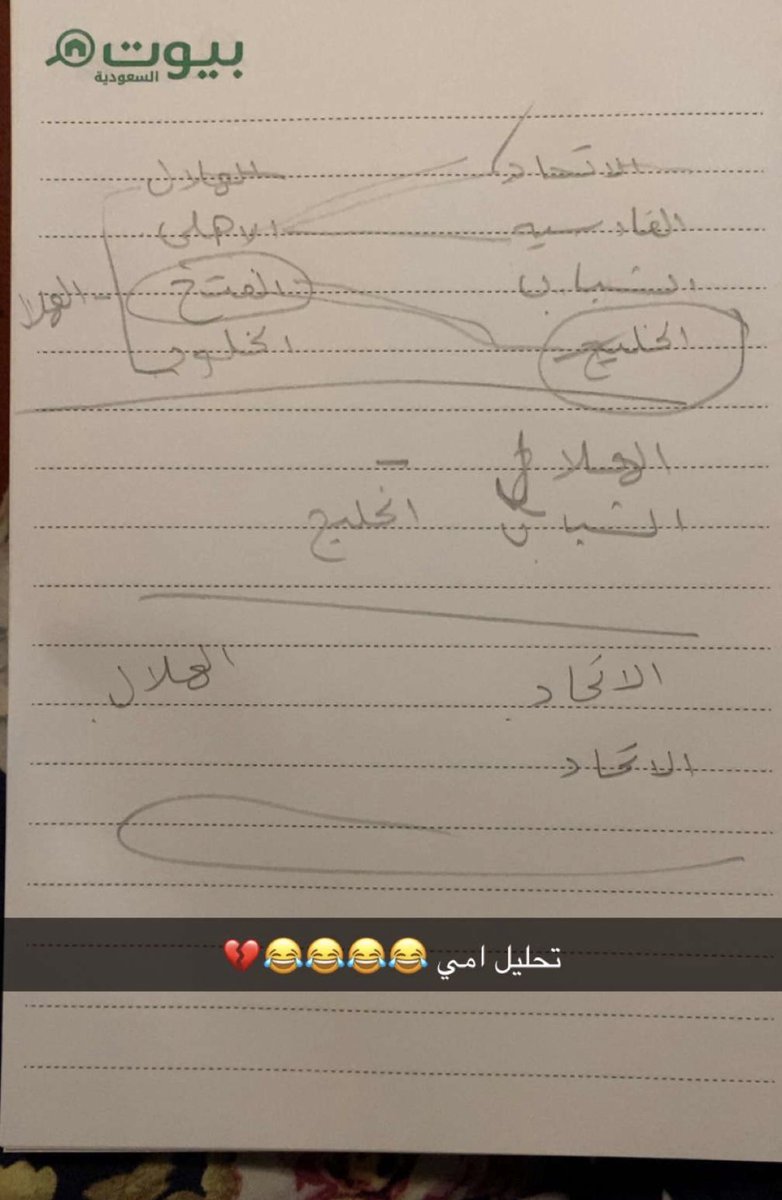 بيوت
السعودية
الاتحاد الهلال
القادسيه الاهلي
الشباب الفتح الهلا
الخليج الخلود
الهلال
الشباب الخليج
الاتحاد الهلال
الاتحاد
تحليل امي 😂😂😂😂💔